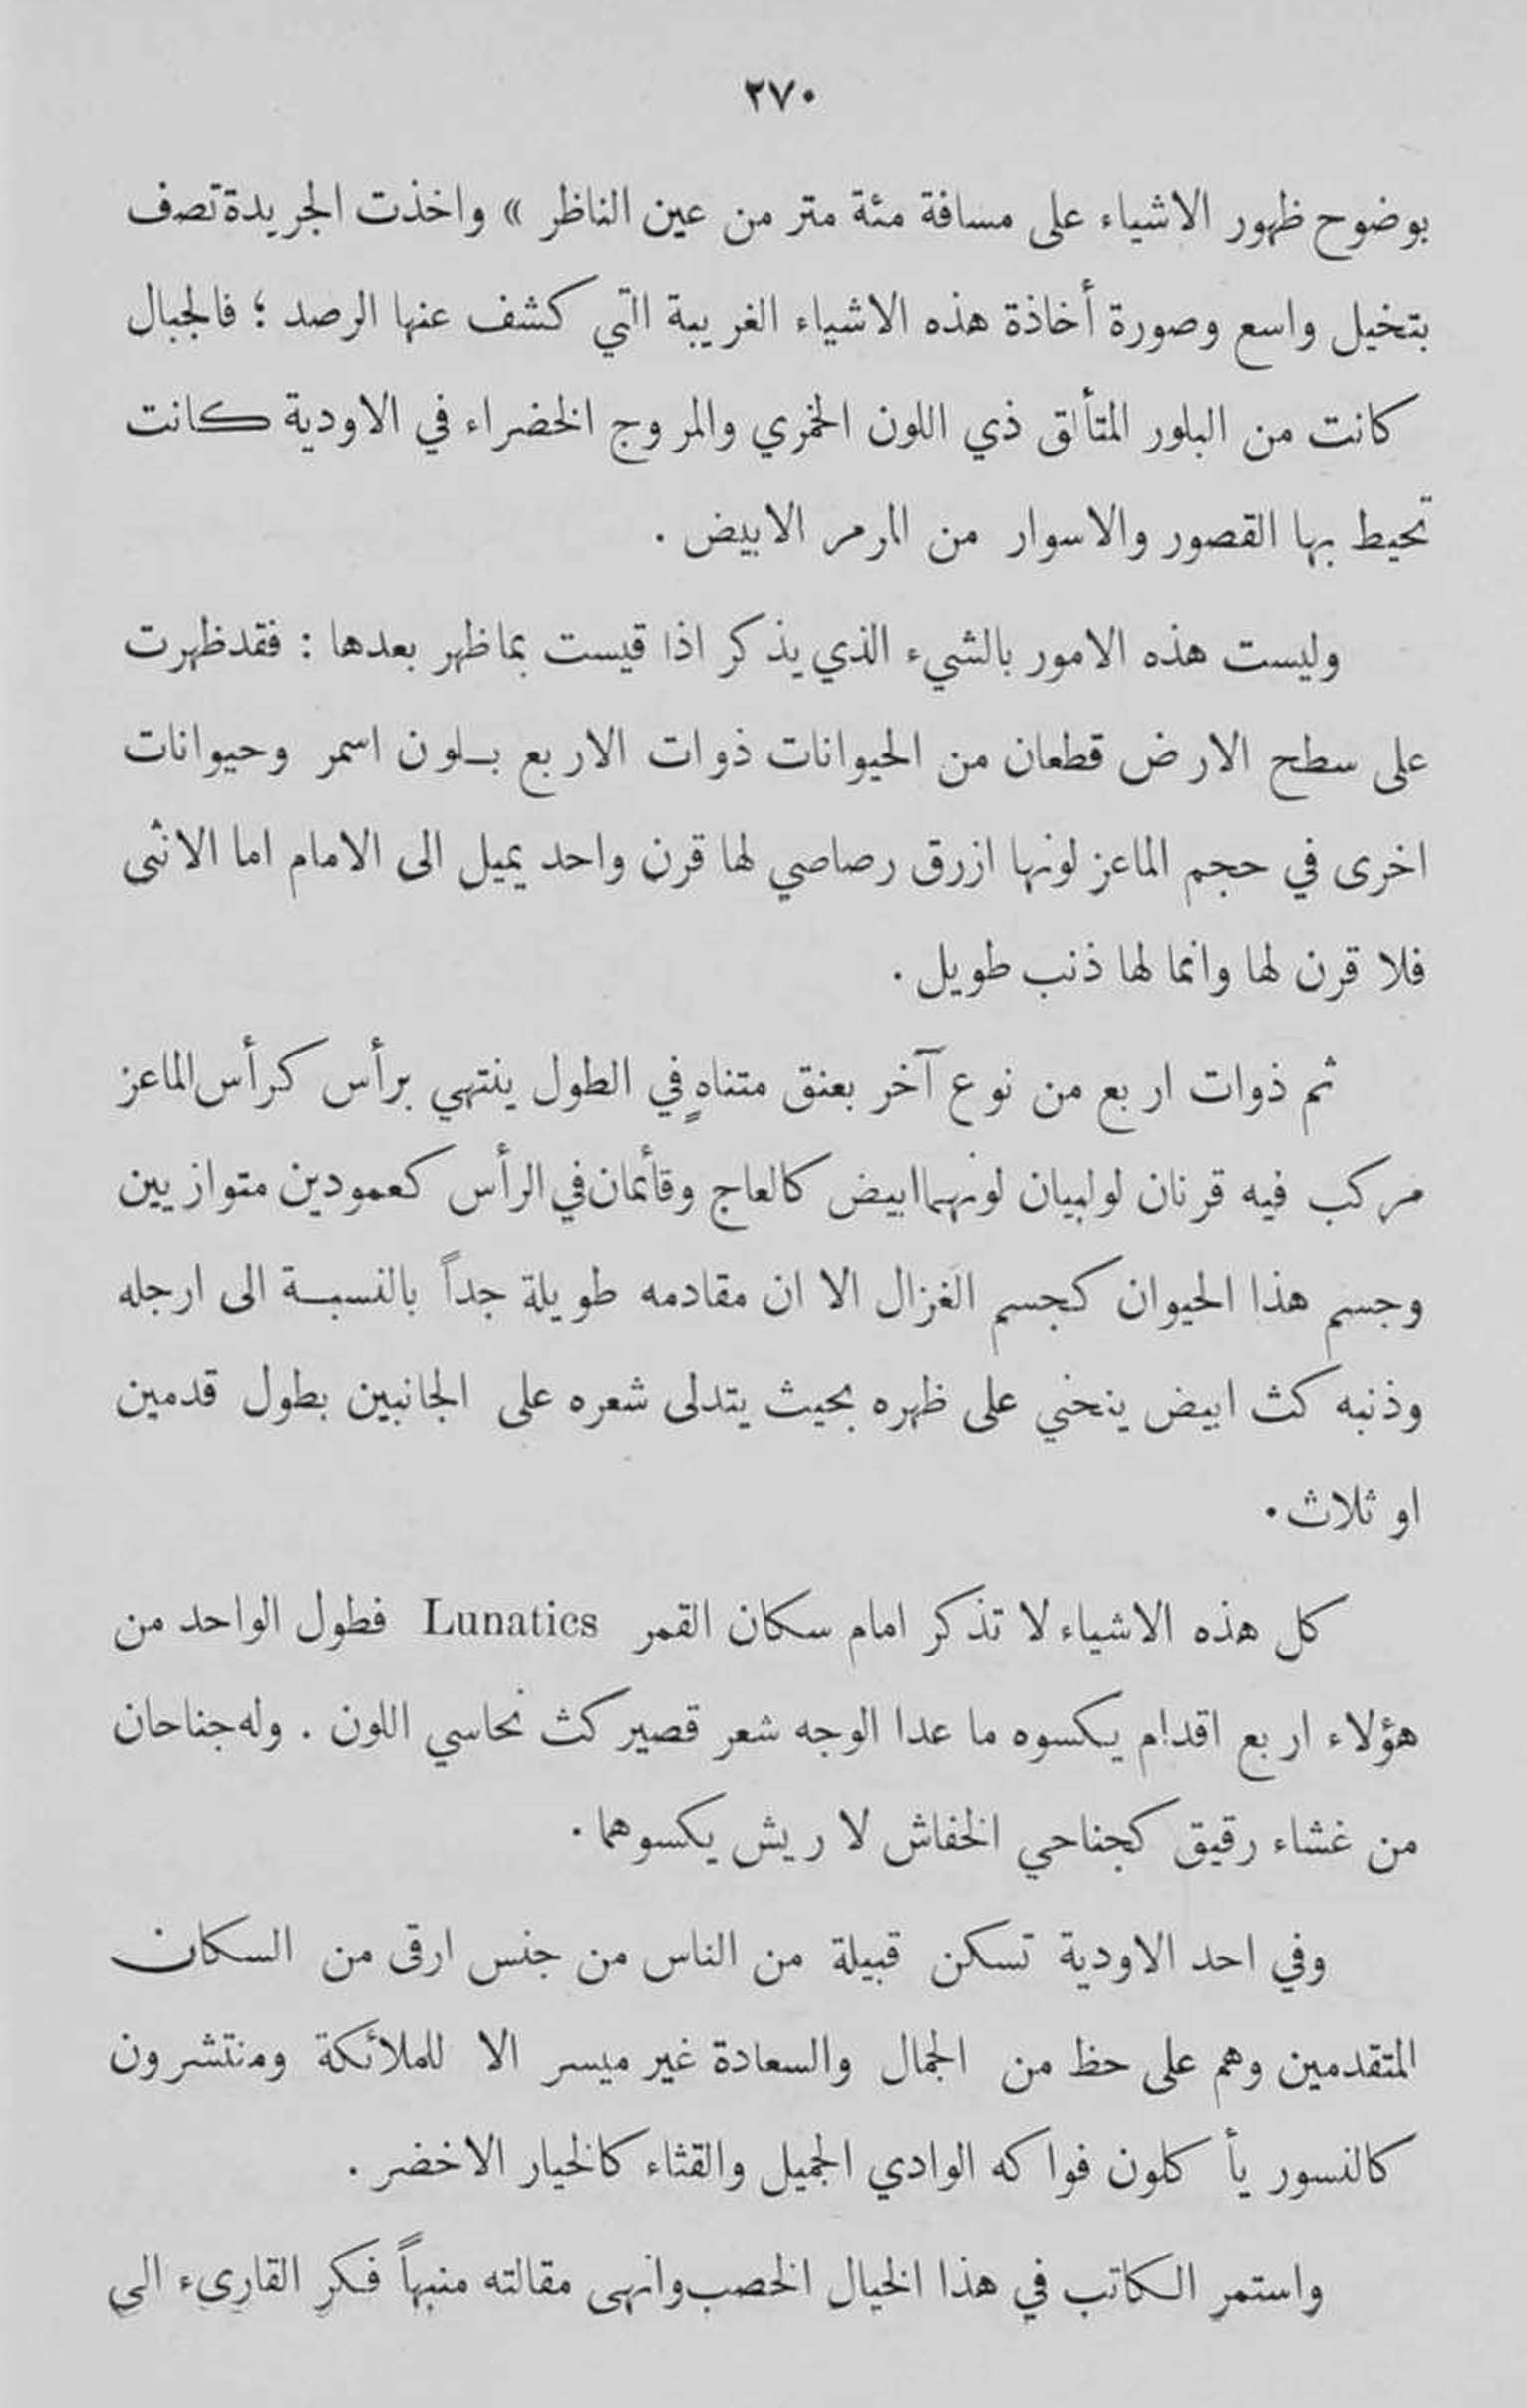 ٢٧٠
بوضوح ظهور الاشياء على مسافة مئة متر من عين الناظر » واخذت الجريدة تصف
بتخيل واسع وصورة أخاذة هذه الاشياء الغريبة التي كشف عنها الرصد ؛ فالجبال
كانت من البلور المتألق ذي اللون الخمري والمروج الخضراء في الاودية كانت
تحيط بها القصور والاسوار من المرمر الابيض .
وليست هذه الامور بالشيء الذي يذكر اذا قيست بما ظهر بعدها : فقد ظهرت
على سطح الارض قطعان من الحيوانات ذوات الاربع بلون اسمر وحيوانات
اخرى في حجم الماعز لونها ازرق رصاصي لها قرن واحد يميل الى الامام اما الانثى
فلا قرن لها وانما لها ذنب طويل .
ثم ذوات اربع من نوع آخر بعنق متناهٍ في الطول ينتهي برأس كرأس الماعز
مركب فيه قرنان لولبيان لونهما ابيض كالعاج وقأئمان في الرأس كعمودين متوازيين
وجسم هذا الحيوان كجسم الغزال الا ان مقادمه طويلة جداً بالنسبة الى ارجله
وذنبه كث ابيض ينحني على ظهره بحيث يتدلى شعره على الجانبين بطول قدمين
او ثلاث .
كل هذه الاشياء لا تذكر امام سكان القمر Lunatics فطول الواحد من
هؤلاء اربع اقدام يكسوه ما عدا الوجه شعر قصير كث نحاسي اللون . وله جناحان
من غشاء رقيق كجناحي الخفاش لا ريش يكسوهما .
وفي احد الاودية تسكن قبيلة من الناس من جنس ارقى من السكان
المتقدمين وهم على حظ من الجمال والسعادة غير ميسر الا للملائكة ومنتشرون
كالنسور يأكلون فواكه الوادي الجميل والقثاء كالخيار الاخضر .
واستمر الكاتب في هذا الخيال الخصب وانهى مقالته منبهاً فكر القارىء الى